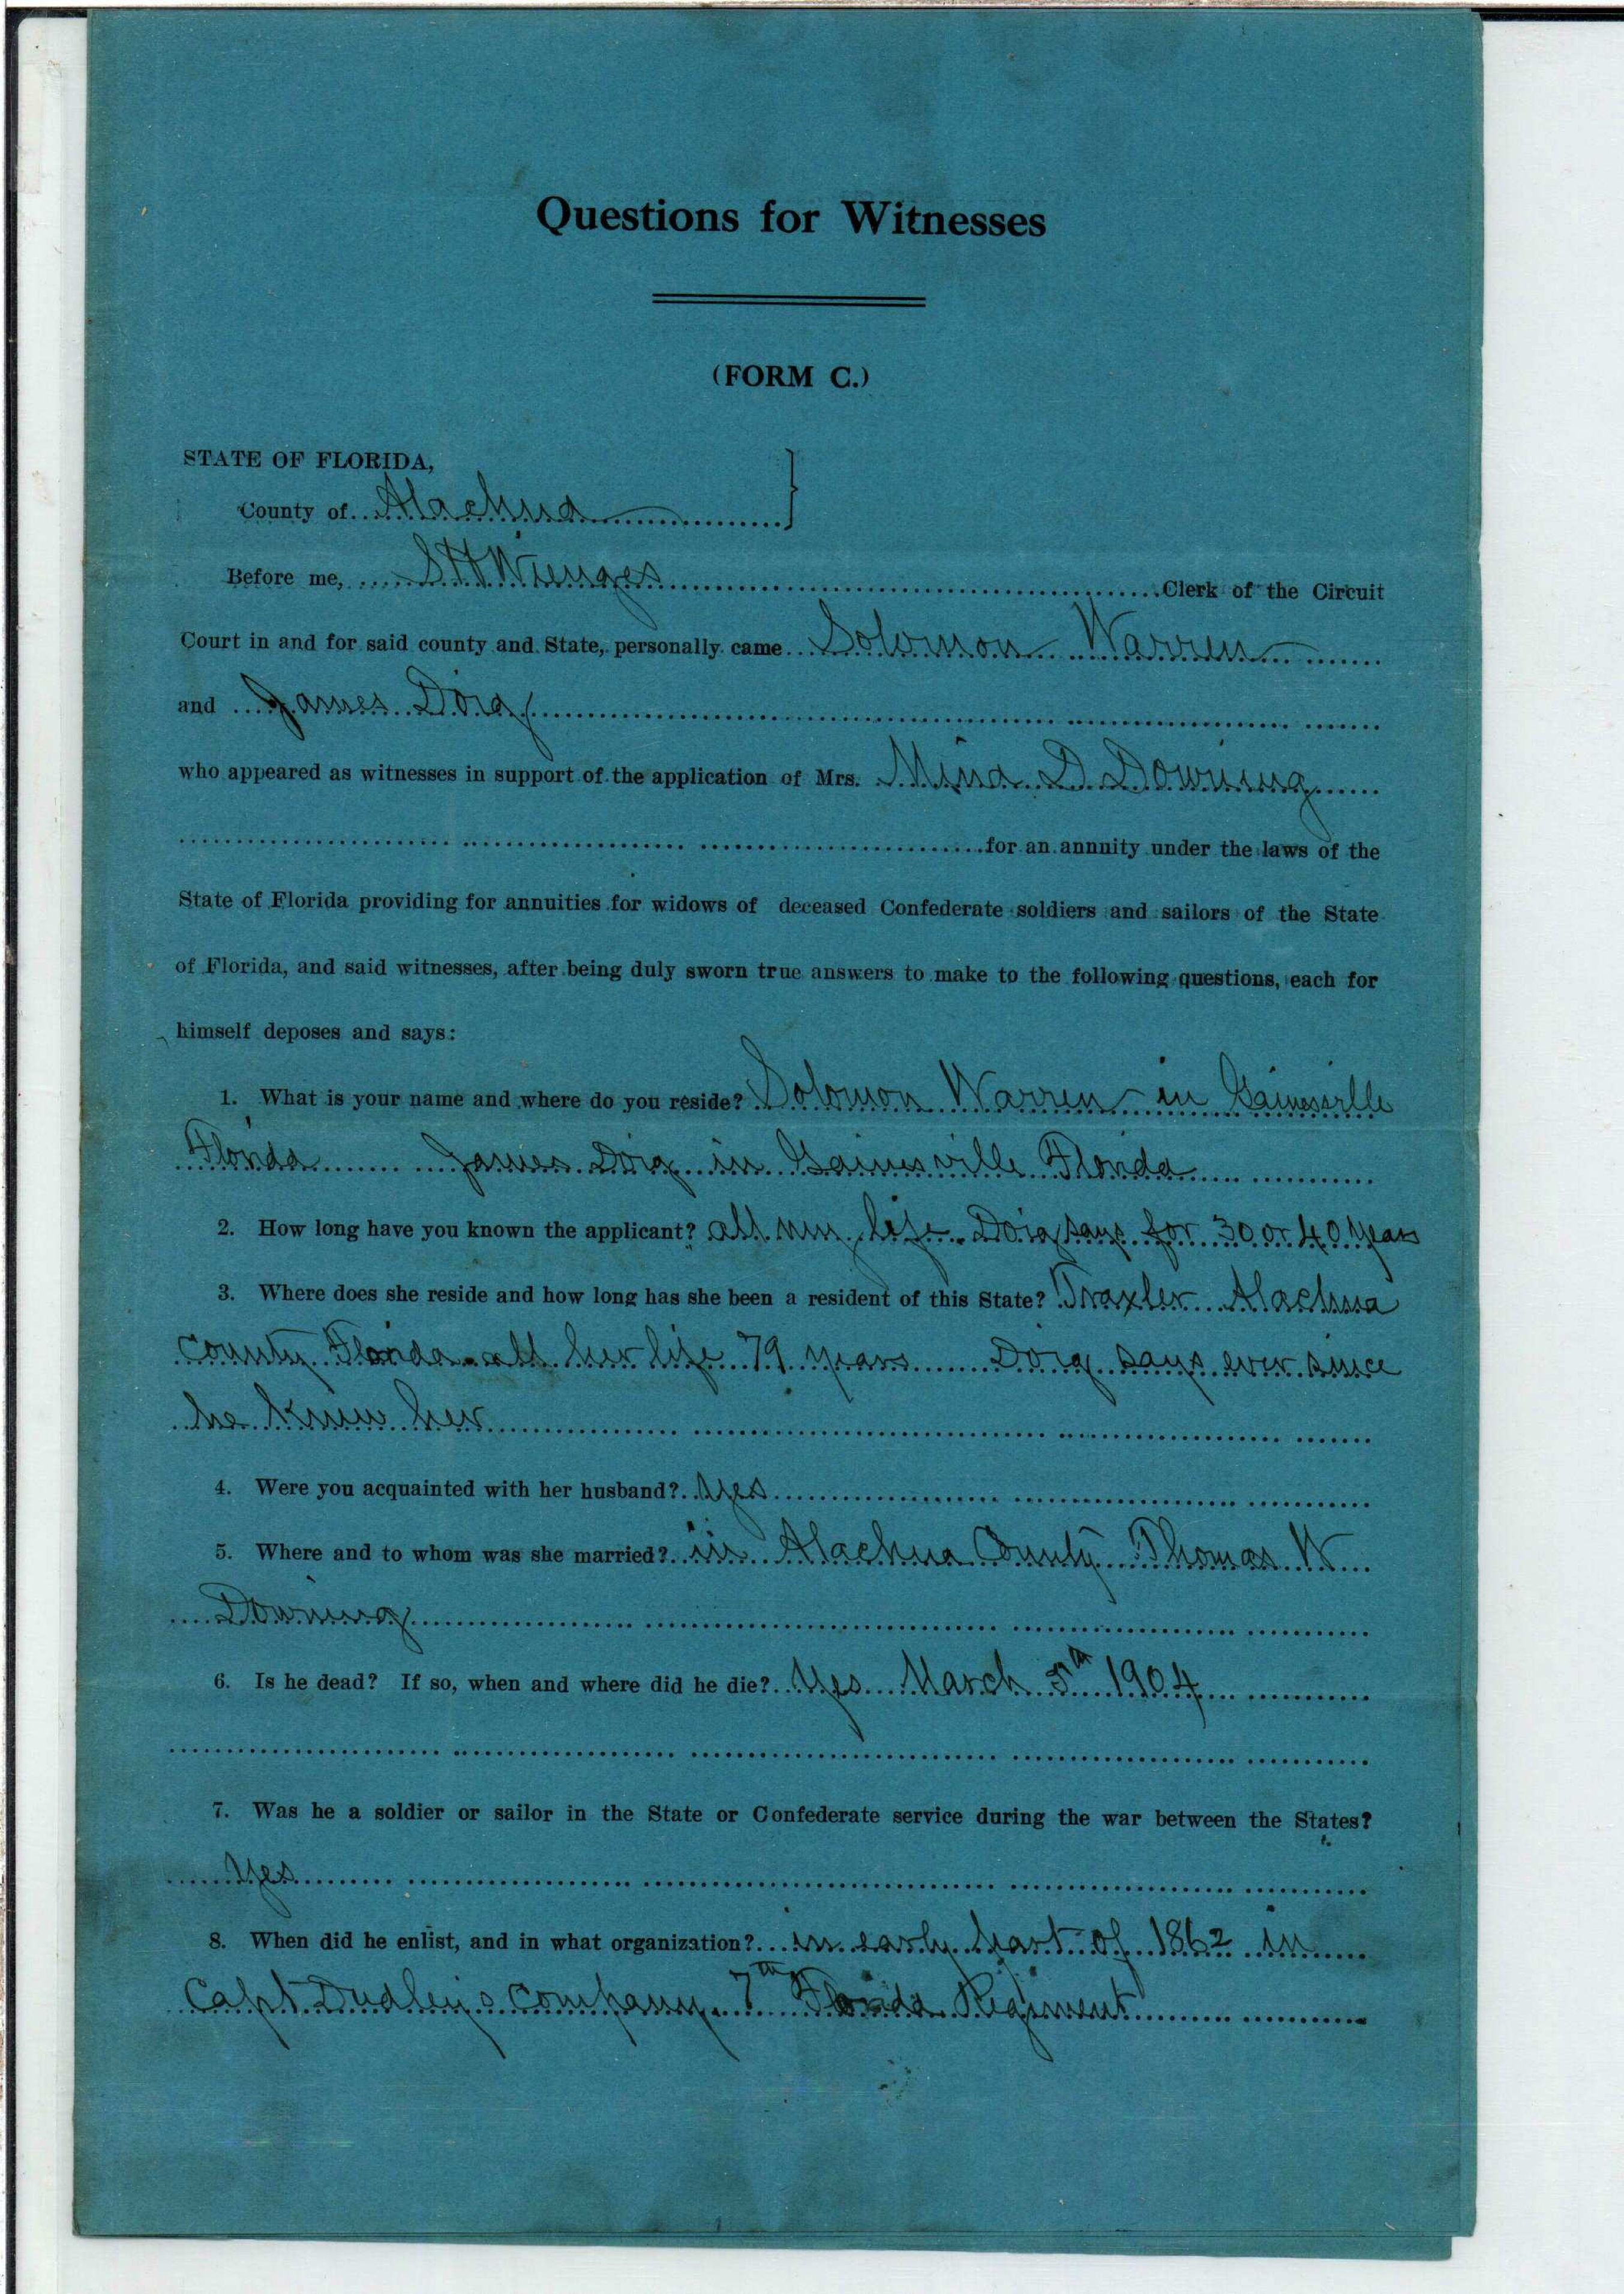 Questions for Witnesses
(FORM C.)
STATE OF FLORIDA,
County of Alachua
Before me, S H Wienges Clerk of the Circuit
Court in and for said county and State, personally came Solomon Warren
and James Doig
who appeared as witnesses in support of the application of Mrs. Mina D Downing
for an annnity under the laws of the
State of Florida providing for annuities for widows of deceased Confederate soldiers and sailors of the State
of Florida, and said witnesses, after being duly sworn true answers to make to the following questions, each for
himself deposes and says:
1. What is your name and where do you reside? Solomon Warren in Gainesville
Florida James Doig in Gainesville Florida
2. How long have you known the applicant? all my life Doig says for 30 or 40 years
3. Where does she reside and how long has she been a resident of this State? Traxler Alachua
county Florida all her life 79 years Doig says ever since
he knew her
4. Were you acquainted with her husband? Yes
5. Where and to whom was she married? in Alachua County Thomas W
Downing
6. Is he dead? If so, when and where did he die? Yes March 5th 1904
7. Was he a soldier or sailor in the State or Confederate service during the war between the States?
Yes
8. When did he enlist, and in what organization? in early part of 1862 in
Capt Dudleys company 7th Florida Regiment